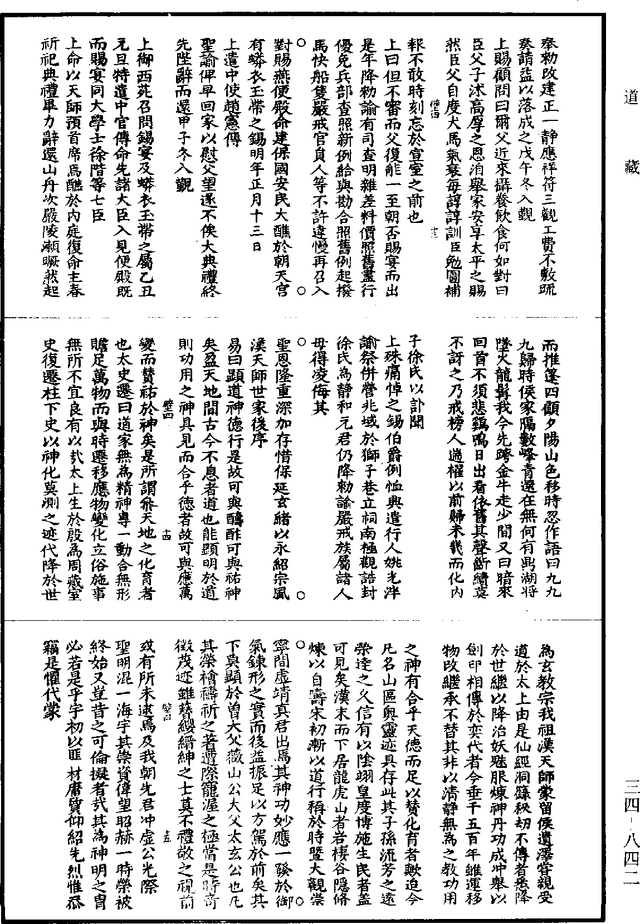 道藏
奉勅改建正一靜應祥符三觀工費不敷疏
奏請益以落成之戊午冬入覲
上賜顧問曰爾父近來攝養飲食何如對曰
臣父子述高厚之恩泊舉家安享太平之賜
然臣父自度犬馬氣衰每諄諄訓臣勉圖補
報不敢時刻忘於萱室之前也
上曰但不審而父復能一至朝否賜宴而出
是年降勅諭有司查明雜差料價照舊蠲行
優免兵部查照新例給與勘合照舊例起撥
馬快船隻嚴戒官員人等不許違慢再召入
對賜燕便殿命建保國安民大醮於朝天宮
有蟒衣玉帶之錫明年正月十三日
上遣中使趙憲傳
聖諭俾早回家以慰父望遂不俟大典禮終
先陛辭而還甲子冬入覲
上御西苑召問錫宴及蟒衣玉帶之屬乙丑
元旦特遣中官傳命先諸大臣入見便殿既
而賜宴同大學士徐階等七臣
上命以天師預首席爲醮於內庭復命主春
祈祀典禮畢力辭還山丹次嚴陵瀨暝然起
而推篷四顧夕陽山色移時忽作語曰九九
九歸時侯家隔數峰青還在無何有烏湖將
墜火龍髯我今先跨金牛走少間又曰暗來
回首不須悲鷄鳴日出看依舊其聲斷續莫
不訝之乃戒榜人適櫂以前歸未幾而化內
子徐氏以訃聞
上殊痛悼之錫伯爵例恤典遣行人姚光泮
諭祭併營兆域於獅子巷立祠南極觀誥封
徐氏爲靜和元君仍降勅諭嚴戒族屬諸人
毋得凌侮其
聖恩隆重深加存惜保延玄緒以永紹宗風
漢天師世家後序
易曰顯道神德行是故可與醻酢可與祐神
矣盈天地間古今不息者道也能顯明於道
則功用之神具見而合乎德者故可與應萬
變而贊祐於神矣是所謂飛天地之化育者
也太史遷曰道家無爲精神專一動合無形
贍足萬物而與時遷移應物變化立俗施事
無所不宜良有以哉太上生於殷爲周藏室
史復遷柱下史以神化莫測之迹代降於世
爲玄教宗我祖漢天師蒙留侯遺澤嘗親受
道於太上由是仙經洞籙秘切不傳者悉降
於世繼以降治妖魅服煉神丹功成冲舉以
劍印相傳於奕代者今垂千五百年雖運移
物改繼承不替其非以清靜無爲之教功用
之神有合乎天德而足以贊化育者歟迨今
凡名山區奧靈迹具存此其子孫流芳之遠
榮達之久信有以陰翊皇度博施生民者蓋
可見矣漢末而下居龍虎山者岩棲谷隱脩
煉以自壽宋初漸以道行稱於時暨大觀崇
寧間虛靖真君出焉其神功妙應一發於御
氣鍊形之實而後益振足以方駕於前矣其
下與顯於曾大父微山公大父太玄公也凡
其榮檜禱祈之著遭際寵渥之極當是時奇
徵茂迹雖簪纓縉紳之士莫不禮敬之視前
或有所未逮焉及我朝先君冲虛公光際
聖明混一海宇其崇資偉望昭赫一時榮被
終始又豈昔之可倫擬者哉其爲神明之冑
必若是乎宇初以匪材膺質仰紹先烈惟忝
竊是懼代蒙
三四–八四二